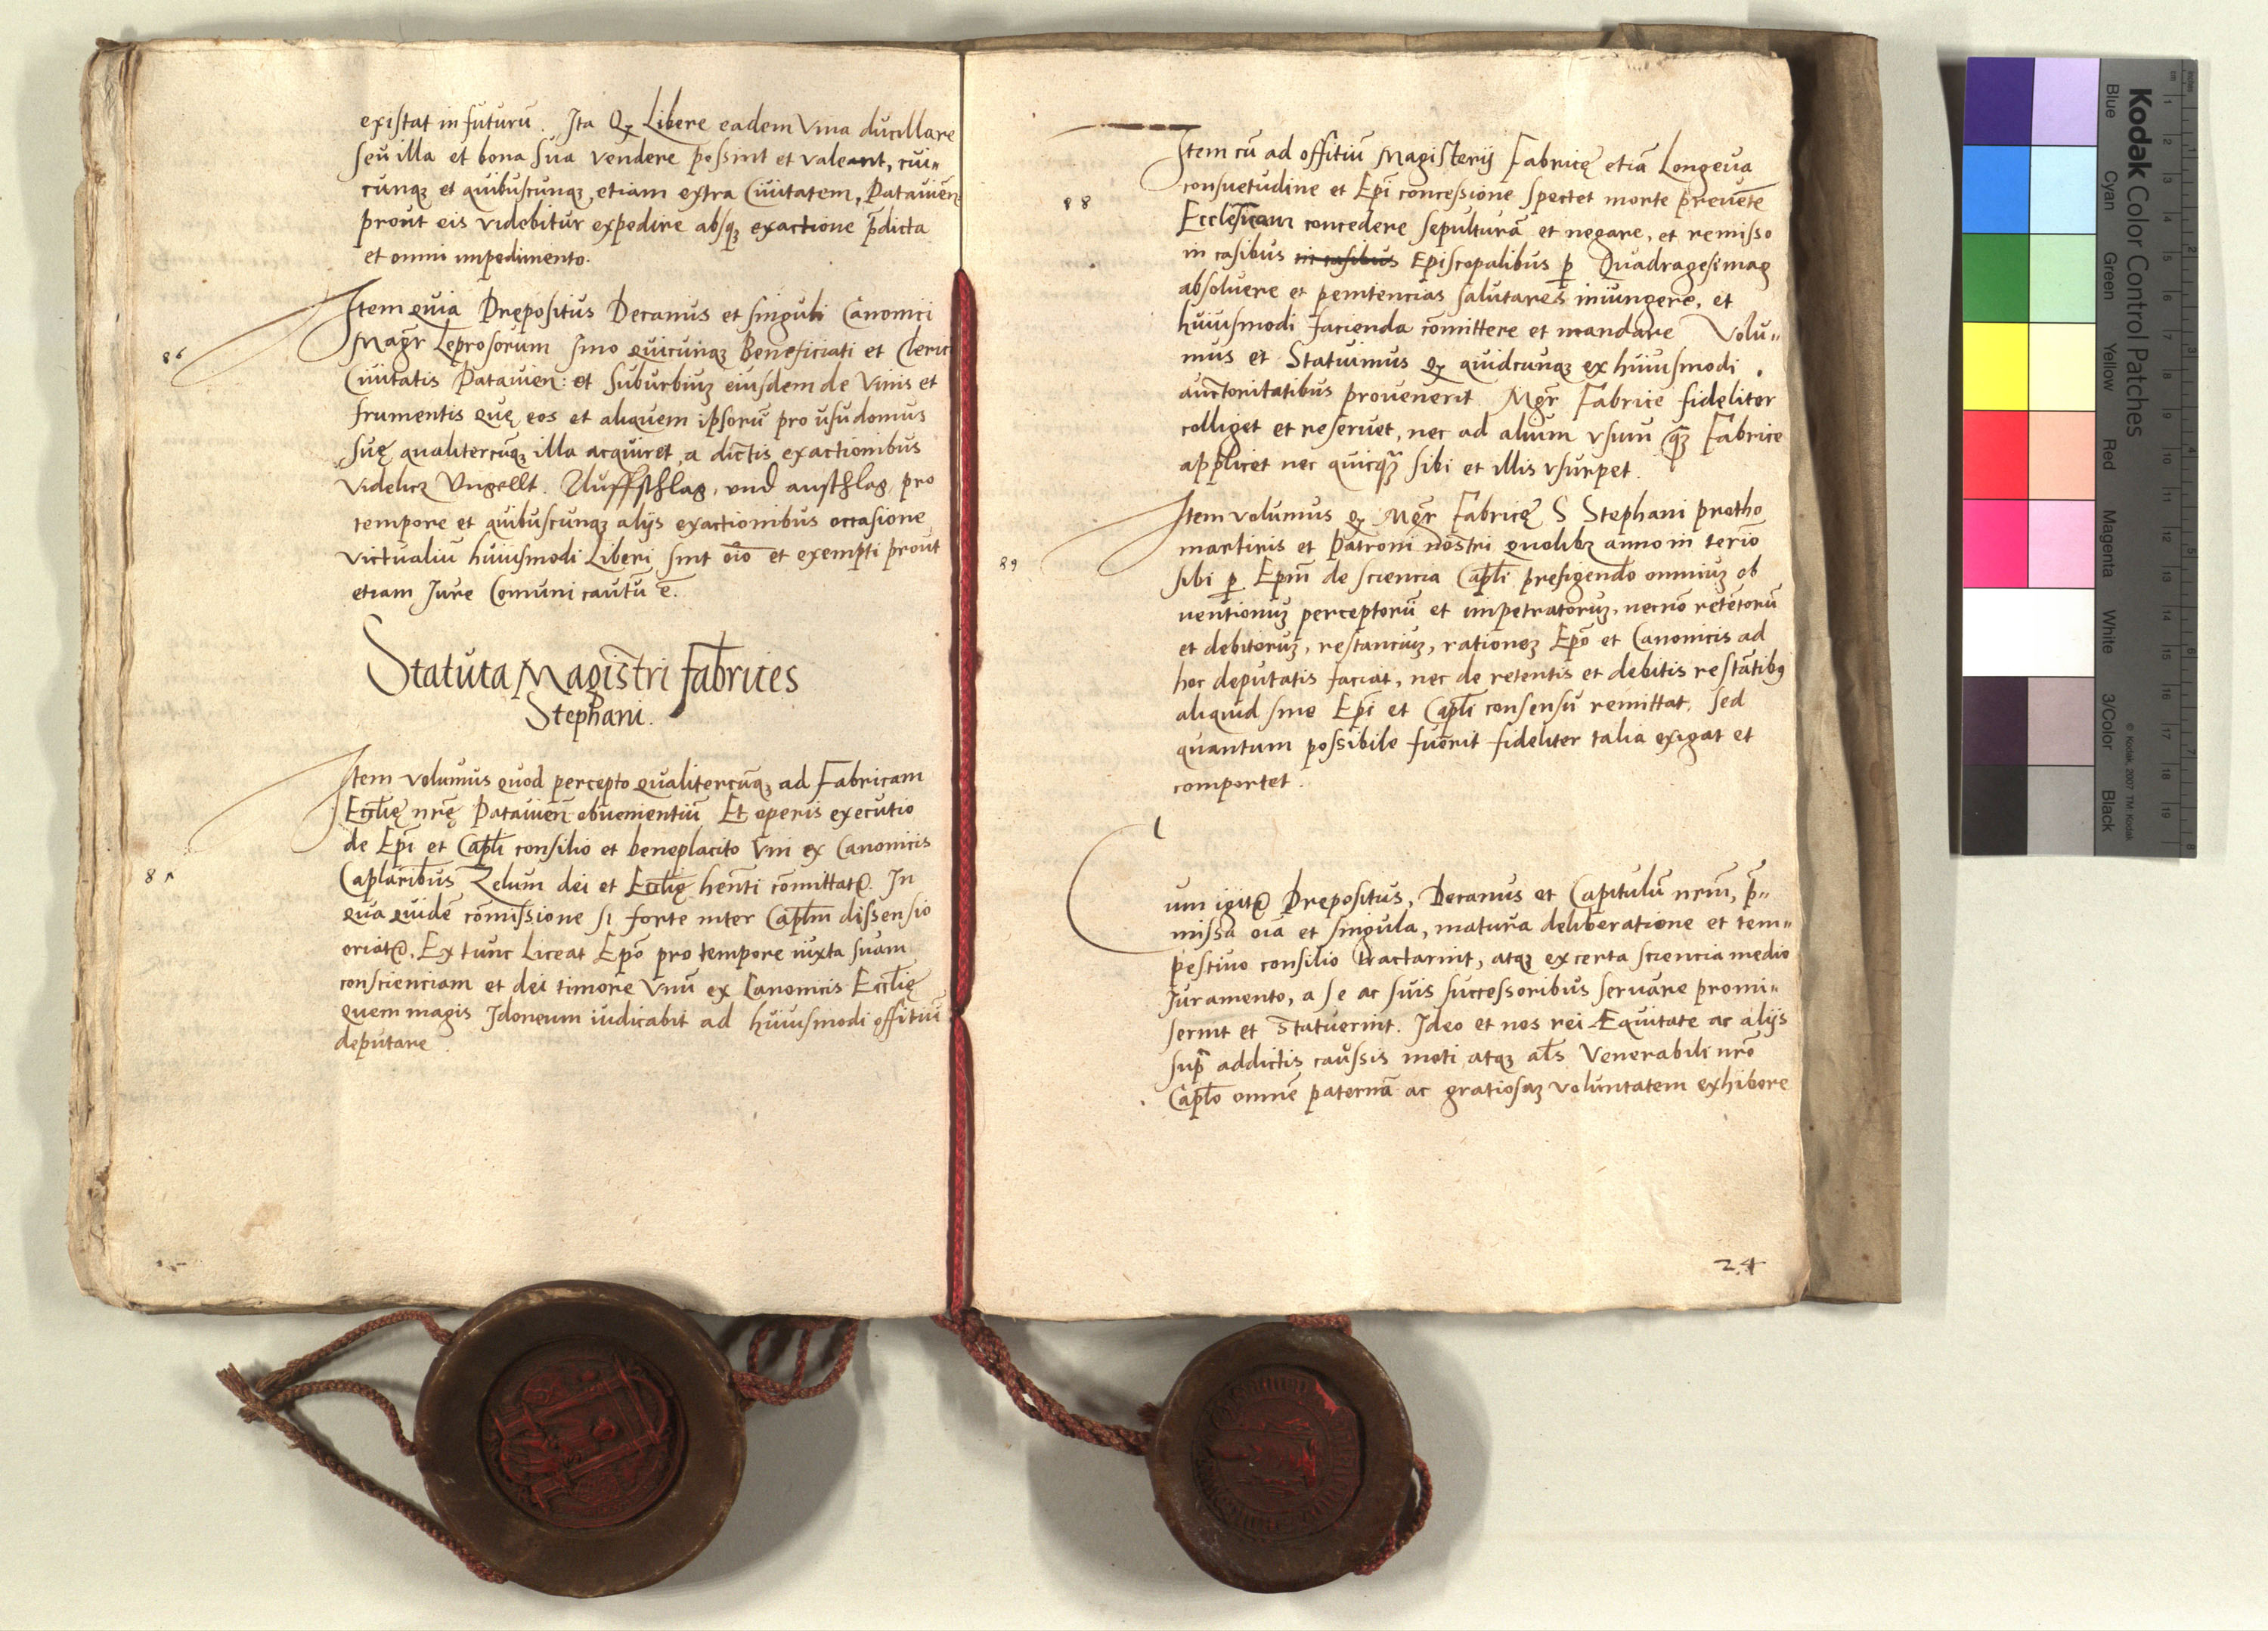 existat in futurū. Ita Qꝫ Libere eadem Vina ducillare
seu illa et bona sua vendere possint et valeant, cui=
cunqꝫ et quibuscunqꝫ, etiam extra Ciuitatem, Patauien̄
prout eis videbitur expedire absqꝫ exactione p̄dicta
et omni impedimento.
Item quia Prepositus Decanus et singuli Canonici
86
Magr̄ Leprosorum Imo quicunqꝫ Beneficiati et Cleric
Ciuitatis Patauien: et Suburbiuꝫ eiusdem de Vinis et
frumentis quę eos et aliquem ipsorū pro usu domus
suę qualitercūqꝫ illa acquiret, a dictis exactionibus
videlicꝫ Ungellt. Auffschlag, und anschlag, pro
tempore et quibuscunqꝫ alijs exactionibus occasione
victualiū huiusmodi Liberi sint oīo et exempti prout
etiam Jure Comuni cautū ē.
Statuta Magistri fabrices
Stephani.
Item volumus quod percepto qualitercūqꝫ ad Fabricam
Eccl̄ię nr̄ę Patauien̄ obuenientiū Et operis executio
de Ep̄i et Capl̄i consilio et beneplacito Vni ex Canonicis
87
Caplāribus Zelum dei et Eccl̄ię hen̄ti cōmittatꝛ. In
qua quidē cōmissione si forte inter Capl̄m dissensio
oriatꝛ. Ex tunc Liceat Ep̄o pro tempore iuxta suam
conscienciam et dei timore Vnū ex Canonicis Eccl̄ię
quem magis Idoneum iudicabit ad huiusmodi offitiū
deputare
Item cū ad offitiū Magisterij Fabricę etiā Longeua
88
consuetudine et Ep̄i concessione spectet morte preuētē
Ecclesīcam concedere sepulturā et negare, et remisso
in casibus in casibus Episcopalibus ꝑ Quadragesimaꝫ
absoluere et penitencias salutares iniungere, et
huiusmodi facienda cōmittere et mandare Volu=
mus et Statuimus qꝫ quidcunqꝫ ex huiusmodi
auctoritatibus prouenerit Mgr̄ Fabrice fideliter
colliget et reseruet, nec ad alium vsum qꝫ Fabrice
applicet nec quicqꝫ sibi et illis vsurpet.
Item volumus qꝫ Mgr̄ Fabricę S Stephani protho
martiris et Patroni nostri quolibꝫ anno in termīo
89
sibi ꝑ Ep̄m de sciencia Capl̄i prefigendo omniuꝫ ob
uentionuꝫ perceptorū et impetratoruꝫ, necnō retētorū
et debitoruꝫ, restanciuꝫ, rationeꝫ Ep̄o et Canonicis ad
hoc deputatis faciat, nec de retentis et debitis restātibꝫ
aliquid sine Ep̄i et Capl̄i consensu remittat, sed
quantum possibile fuerit fideliter talia exigat et
comportet.
Cum igitꝛ Prepositus, Decanus et Capitulū nr̄m, p̄=
missa oīa et singula, matura deliberatione et tem=
pestiuo consilio tractarint, atqꝫ ex certa sciencia medio
Juramento, a se ac suis successoribus seruare promi=
serint et statuerint. Ideo et nos rei Æquitate ac alijs
supra addictis caussis moti atqꝫ als Venerabili nrō
Capl̄o omnē paternā ac gratiosaꝫ voluntatem exhibere
24
Kodak Color Control Patches
Blue Cyan Green Yellow Red Magenta White 3/Color Black
© Kodak, 2007 TM: Kodak